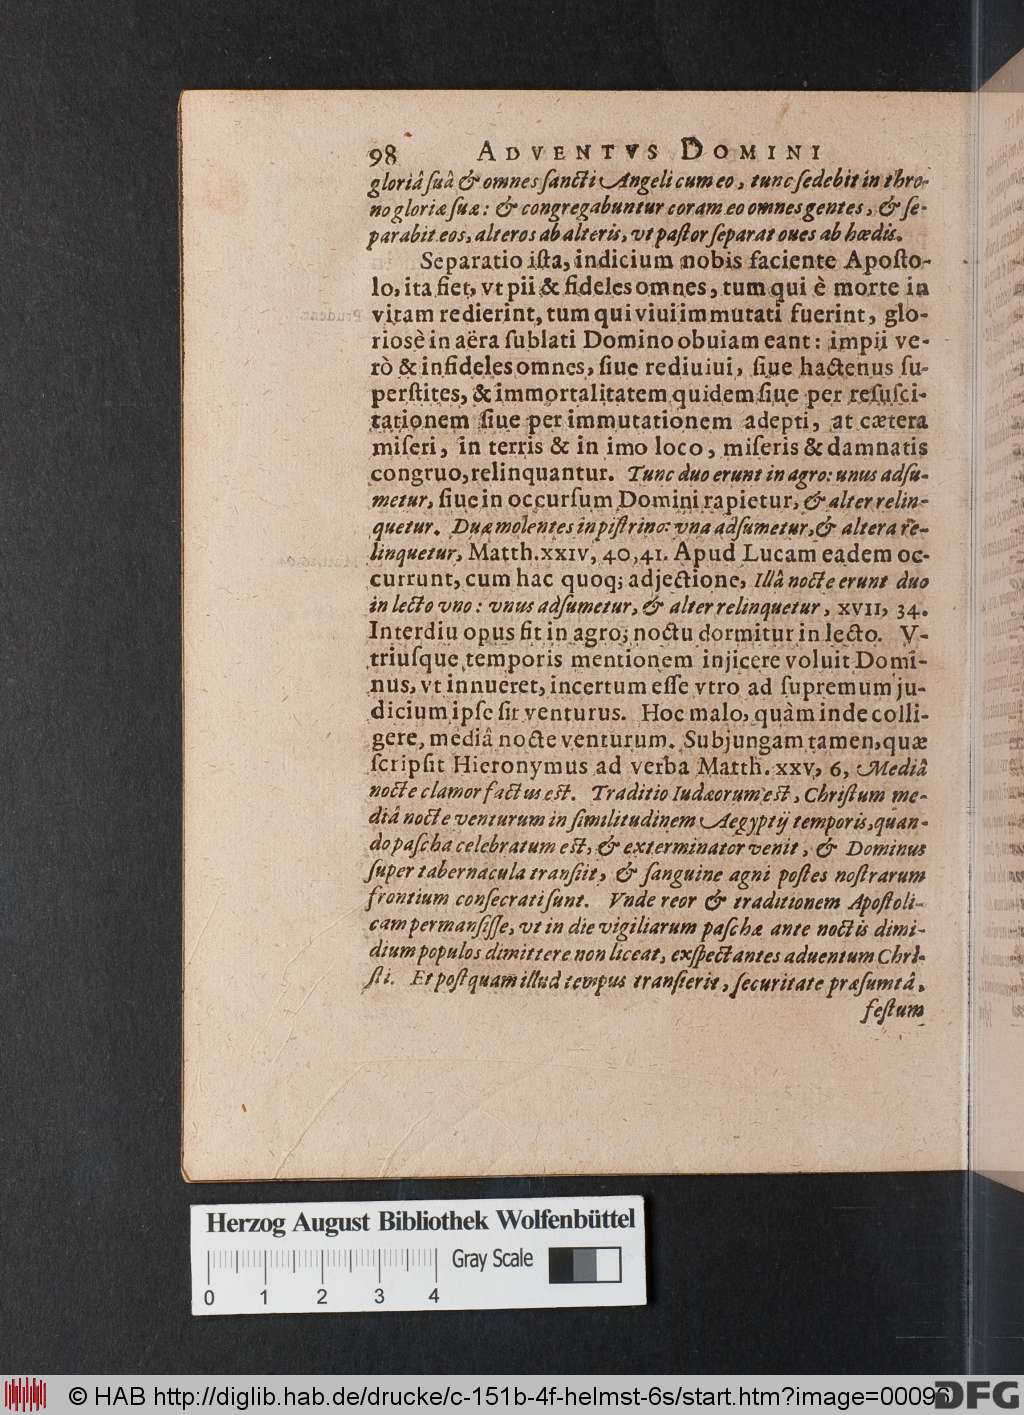 98 ADVENTVS DOMINI
gloriâ ſuâ & omnes ſancti Angeli cum eo, tunc ſedebit in thro-
no gloriæ ſuæ: & congregabuntur coram eo omnes gentes, & ſe-
parabit eos, alteros ab alteris, vt paſtor ſeparat oues ab hœdis.
Separatio iſta, indicium nobis faciente Apoſto-
lo, ita fiet, vt pii & fideles omnes, tum qui è morte in
vitam redierint, tum qui viui immutati fuerint, glo-
riosè in aëra ſublati Domino obuiam eant: impii ve-
rò & infideles omnes, ſiue rediuiui, ſiue hactenus ſu-
perſtites, & immortalitatem quidem ſiue per reſuſci-
tationem ſiue per immutationem adepti, at cætera
miſeri, in terris & in imo loco, miſeris & damnatis
congruo, relinquantur. Tunc duo erunt in agro: unus adſu-
metur, ſiue in occurſum Domini rapietur, & alter relin-
quetur. Duæ molentes in piſtrino: vna adſumetur, & altera re-
linquetur, Matth. XXIV, 40, 41. Apud Lucam eadem oc-
currunt, cum hac quoq; adjectione, Illâ nocte erunt duo
in lecto vno: vnus adſumetur, & alter relinquetur, XVII, 34.
Interdiu opus fit in agro; noctu dormitur in lecto. V-
triuſque temporis mentionem injicere voluit Domi-
nus, vt innueret, incertum eſſe vtro ad ſupremum ju-
dicium ipſe ſit venturus. Hoc malo, quàm inde colli-
gere, mediâ nocte venturum. Subjungam tamen, quæ
ſcripſit Hieronymus ad verba Matth. XXV, 6, Mediâ
nocte clamor factus est. Traditio Iudæorum est, Chriſtum me-
diâ nocte venturum in ſimilitudinem Aegyptij temporis, quan-
do paſcha celebratum est, & exterminator venit, & Dominus
ſuper tabernacula tranſiit, & ſanguine agni poſtes noſtrarum
frontium conſecrati ſunt. Vnde reor & traditionem Apoſtoli-
cam permanſiſſe, vt in die vigiliarum paſchæ ante noctis dimi-
dium populos dimittere non liceat, exſpectantes aduentum Chri-
ſti. Et poſtquam illud tempus tranſierit, ſecuritate præſumtâ,
feſtum
Herzog August Bibliothek Wolfenbüttel
Gray Scale
0 1 2 3 4
© HAB http://diglib.hab.de/drucke/c-151b-4f-helmst-6s/start.htm?image=00096
DFG